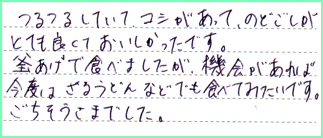 つるつるしていて、コシがあって、のどごしが
とても良くておいしかったです。
釜あげで食べましたが、機会があれば
今度は、ざるうどんなどでも食べてみたいです。
ごちそうさまでした。